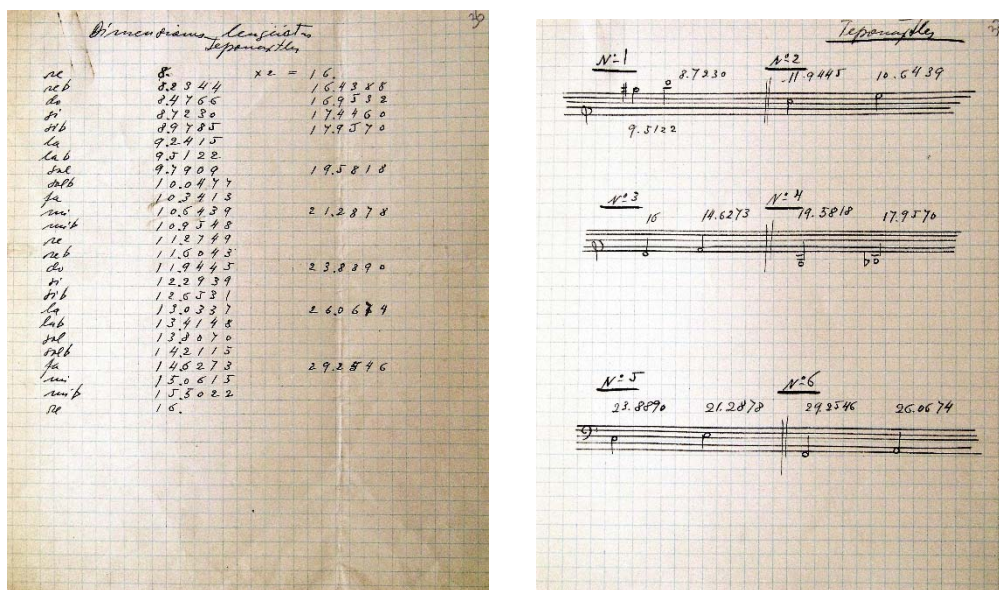 Dimensions lengüetas
Teponaxtles
re 8. x2 = 16.
reb 8.2344 16.4688
do 8.4766 16.9532
si 8.7230 17.4460
sib 8.9785 17.9570
la 9.2415
lab 9.5122
sol 9.7909 19.5818
solb 10.0477
fa 10.3413
mi 10.6439 21.2878
mib 10.9548
re 11.2749
reb 11.6043
do 11.9445 23.8890
si 12.2939
sib 12.6531
la 13.0337 26.0674
lab 13.4148
sol 13.8070
solb 14.2115
fa 14.6273 29.2546
mi 15.0615
mib 15.5022
re 16.
Teponaxtles
Nº 1 Nº 2
8.7230 11.9445 10.6439
9.5122
Nº 3 Nº 4
16 14.6273 19.5818 17.9570
Nº 5 Nº 6
23.8890 21.2878 29.2546 26.0674